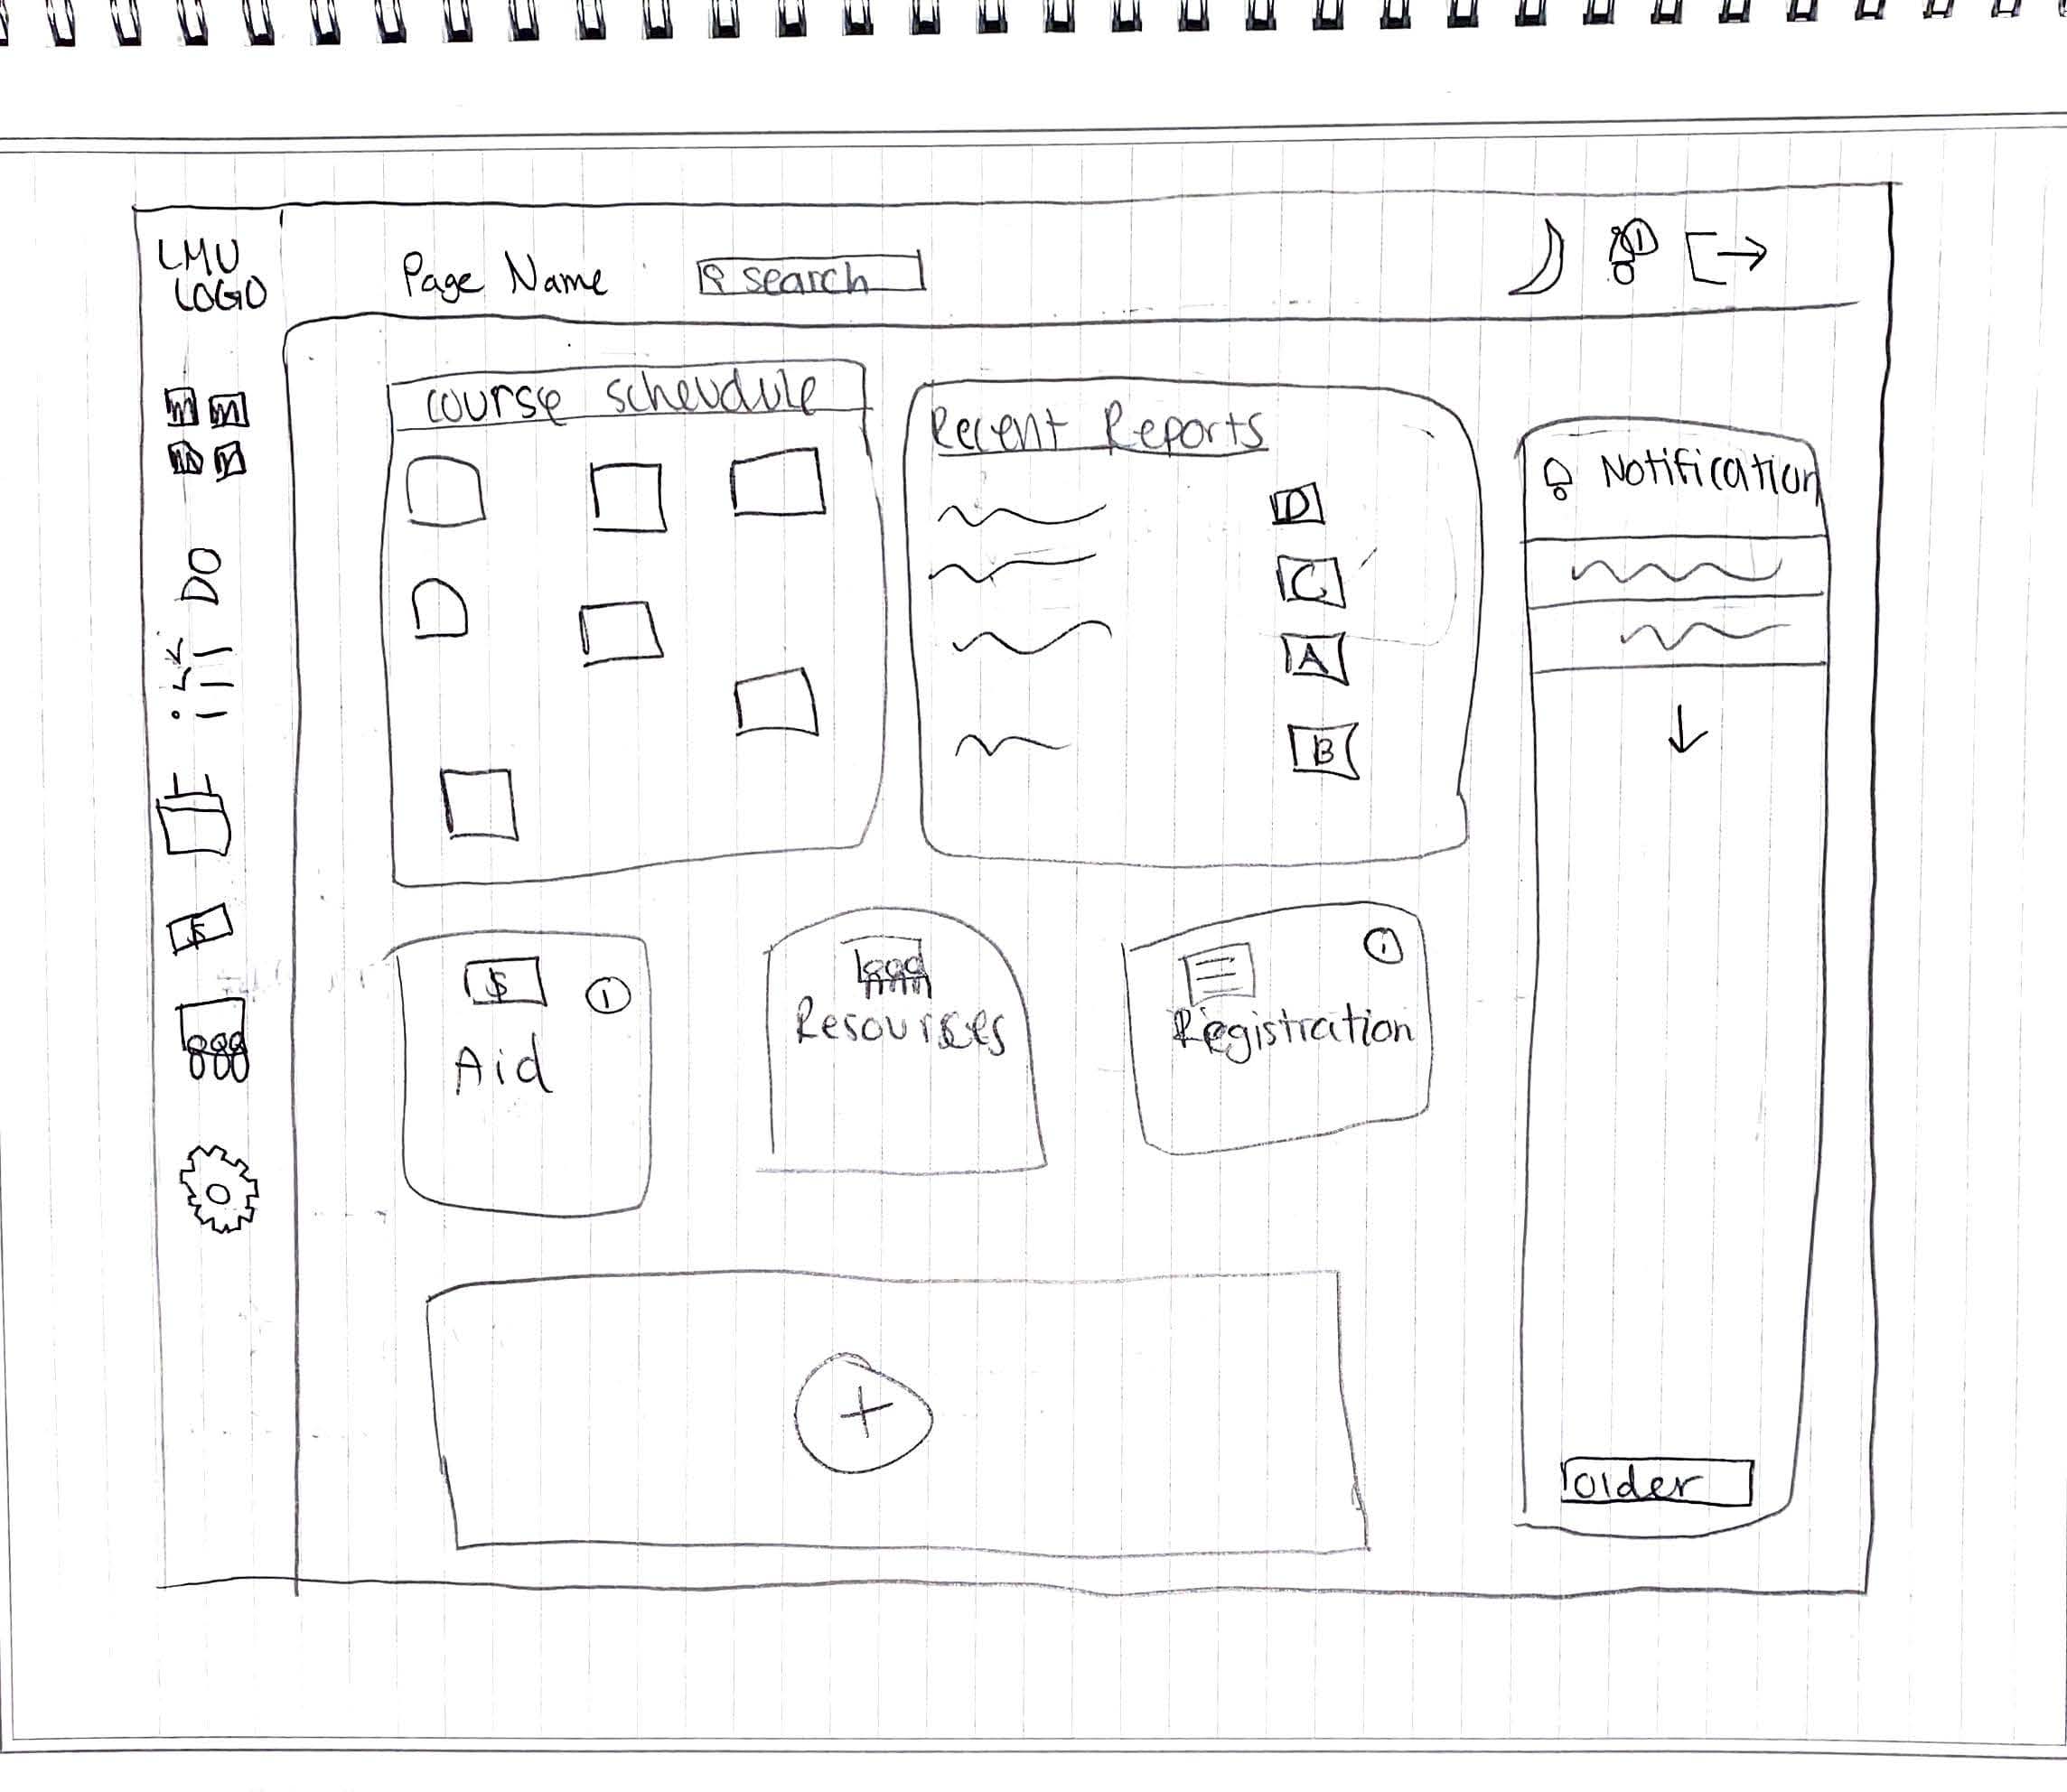 LMU
LOGO
Page Name
search
1
course scheudule
Recent Reports
D
C
A
B
Notification
DO
$
$
1
Aid
Resources
1
Registration
+
older